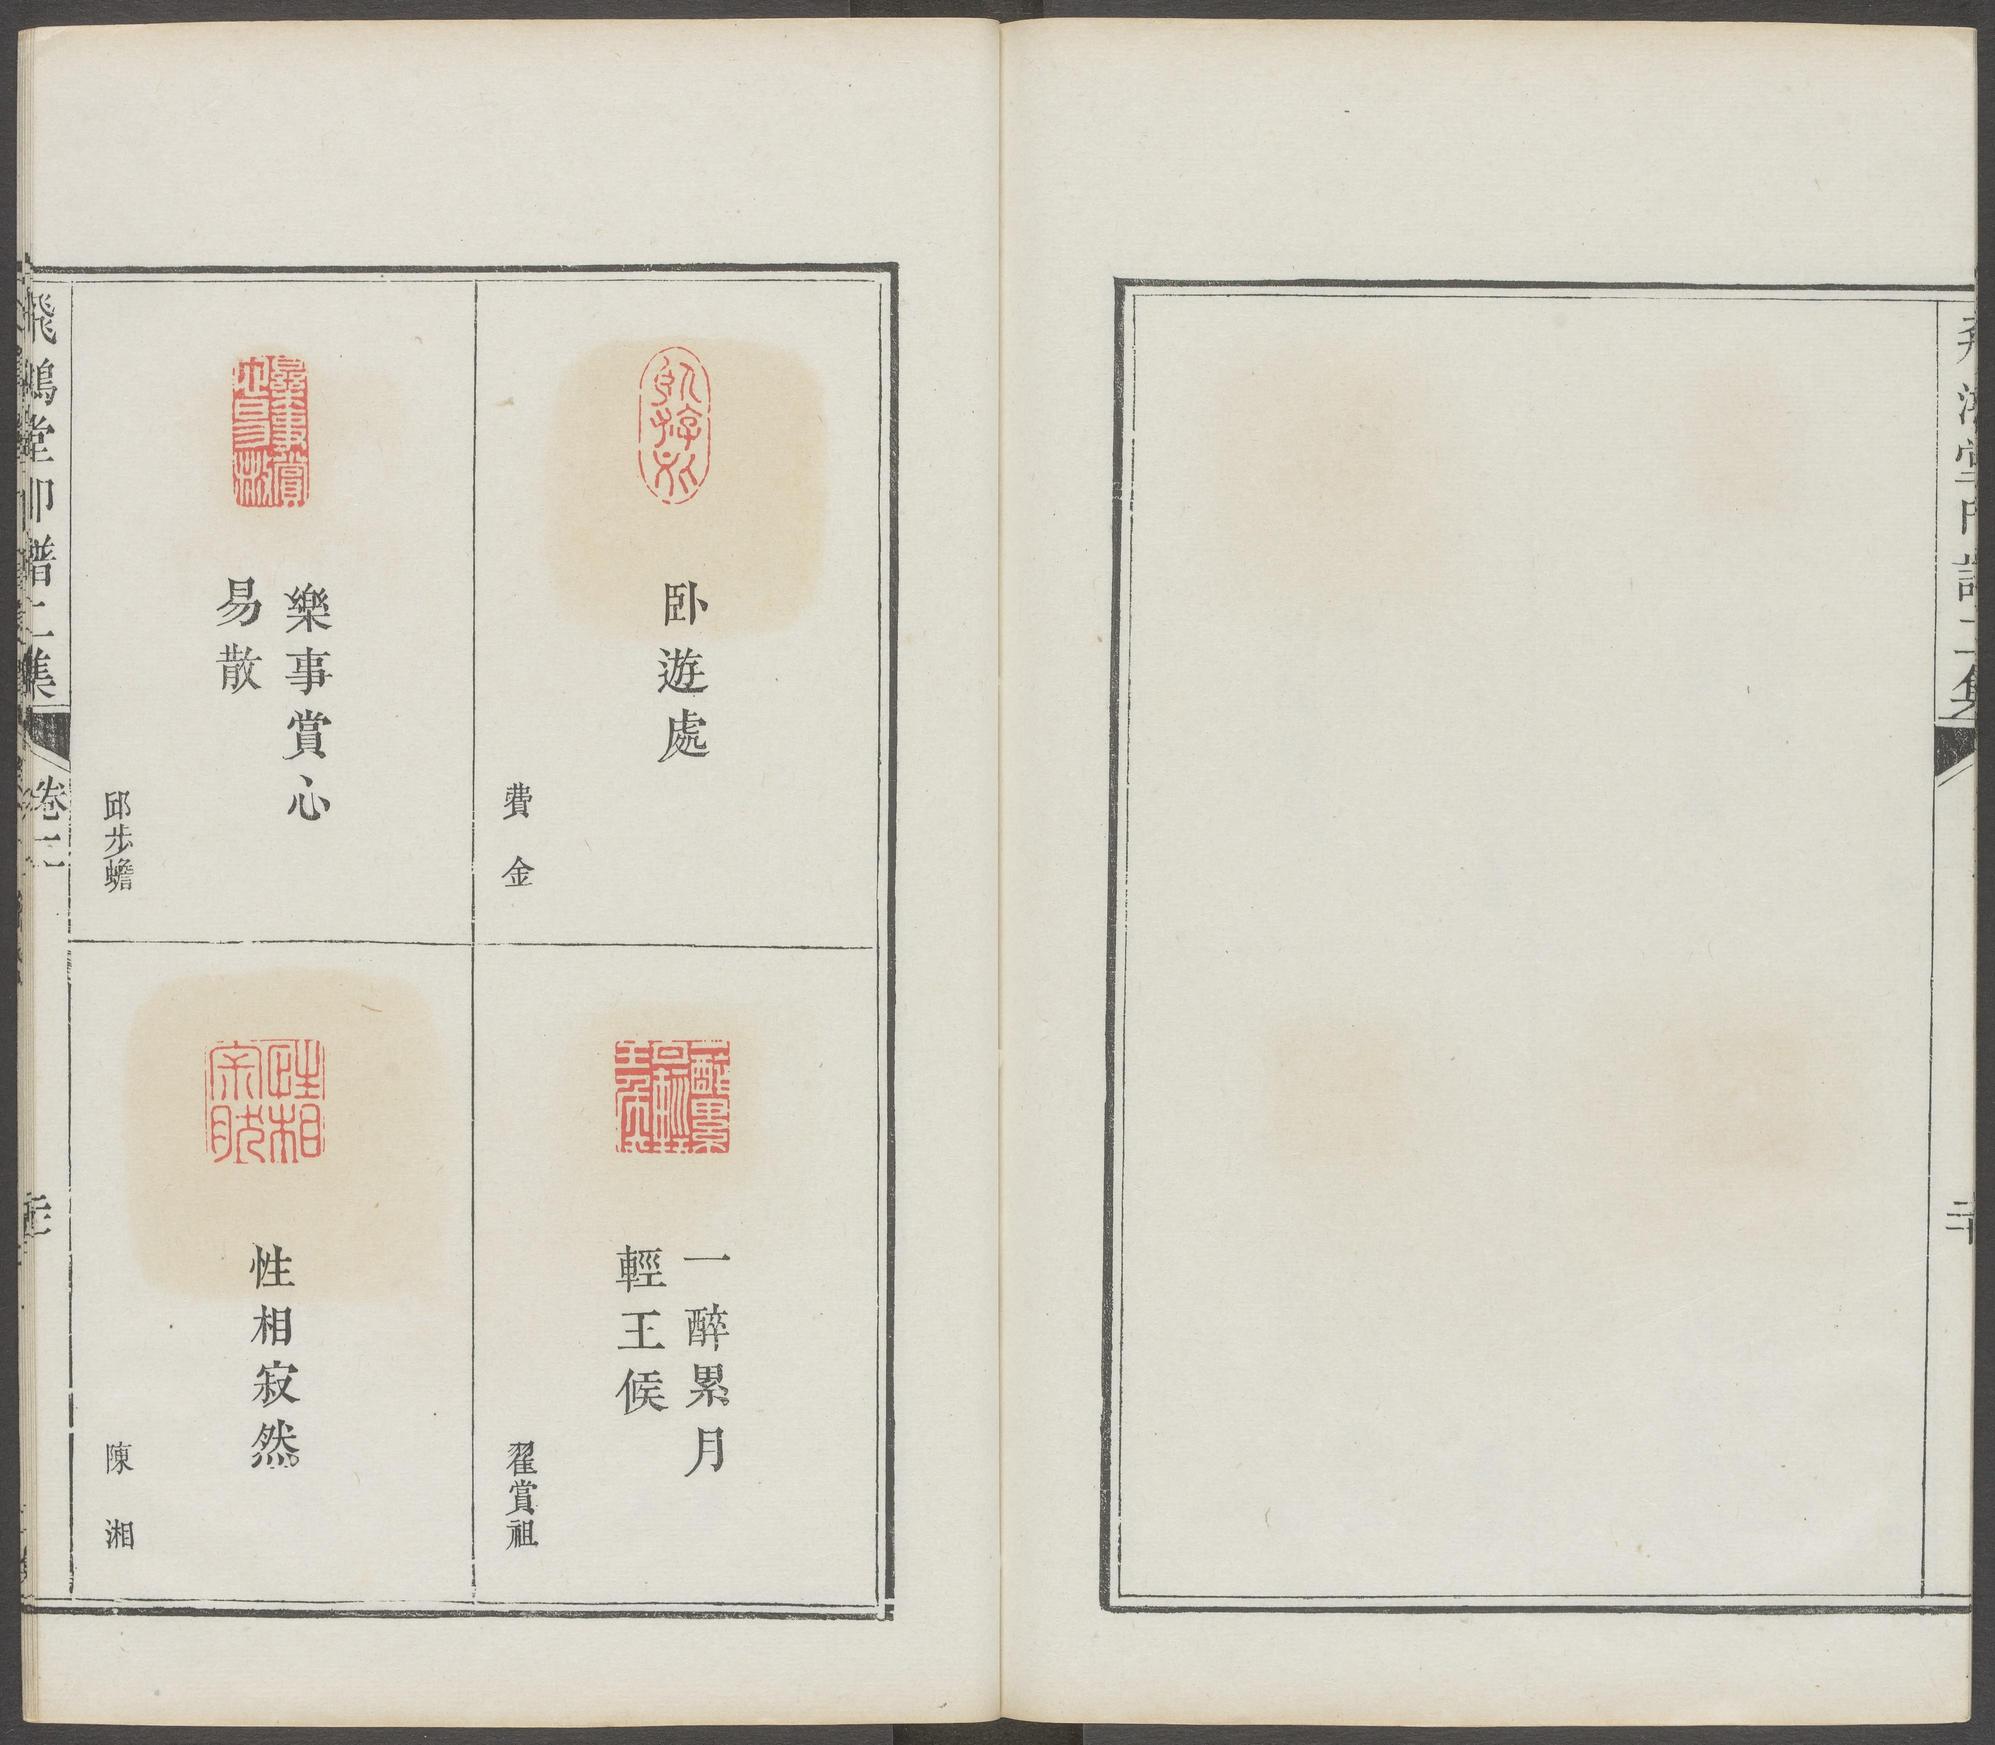 飛鴻堂印譜二集
二十
卧遊處
費金
一醉累月
輕王侯
翟賞祖
樂事賞心
易散
邱步蟾
性相寂然
陳湘
飛鴻堂印譜二集
卷二